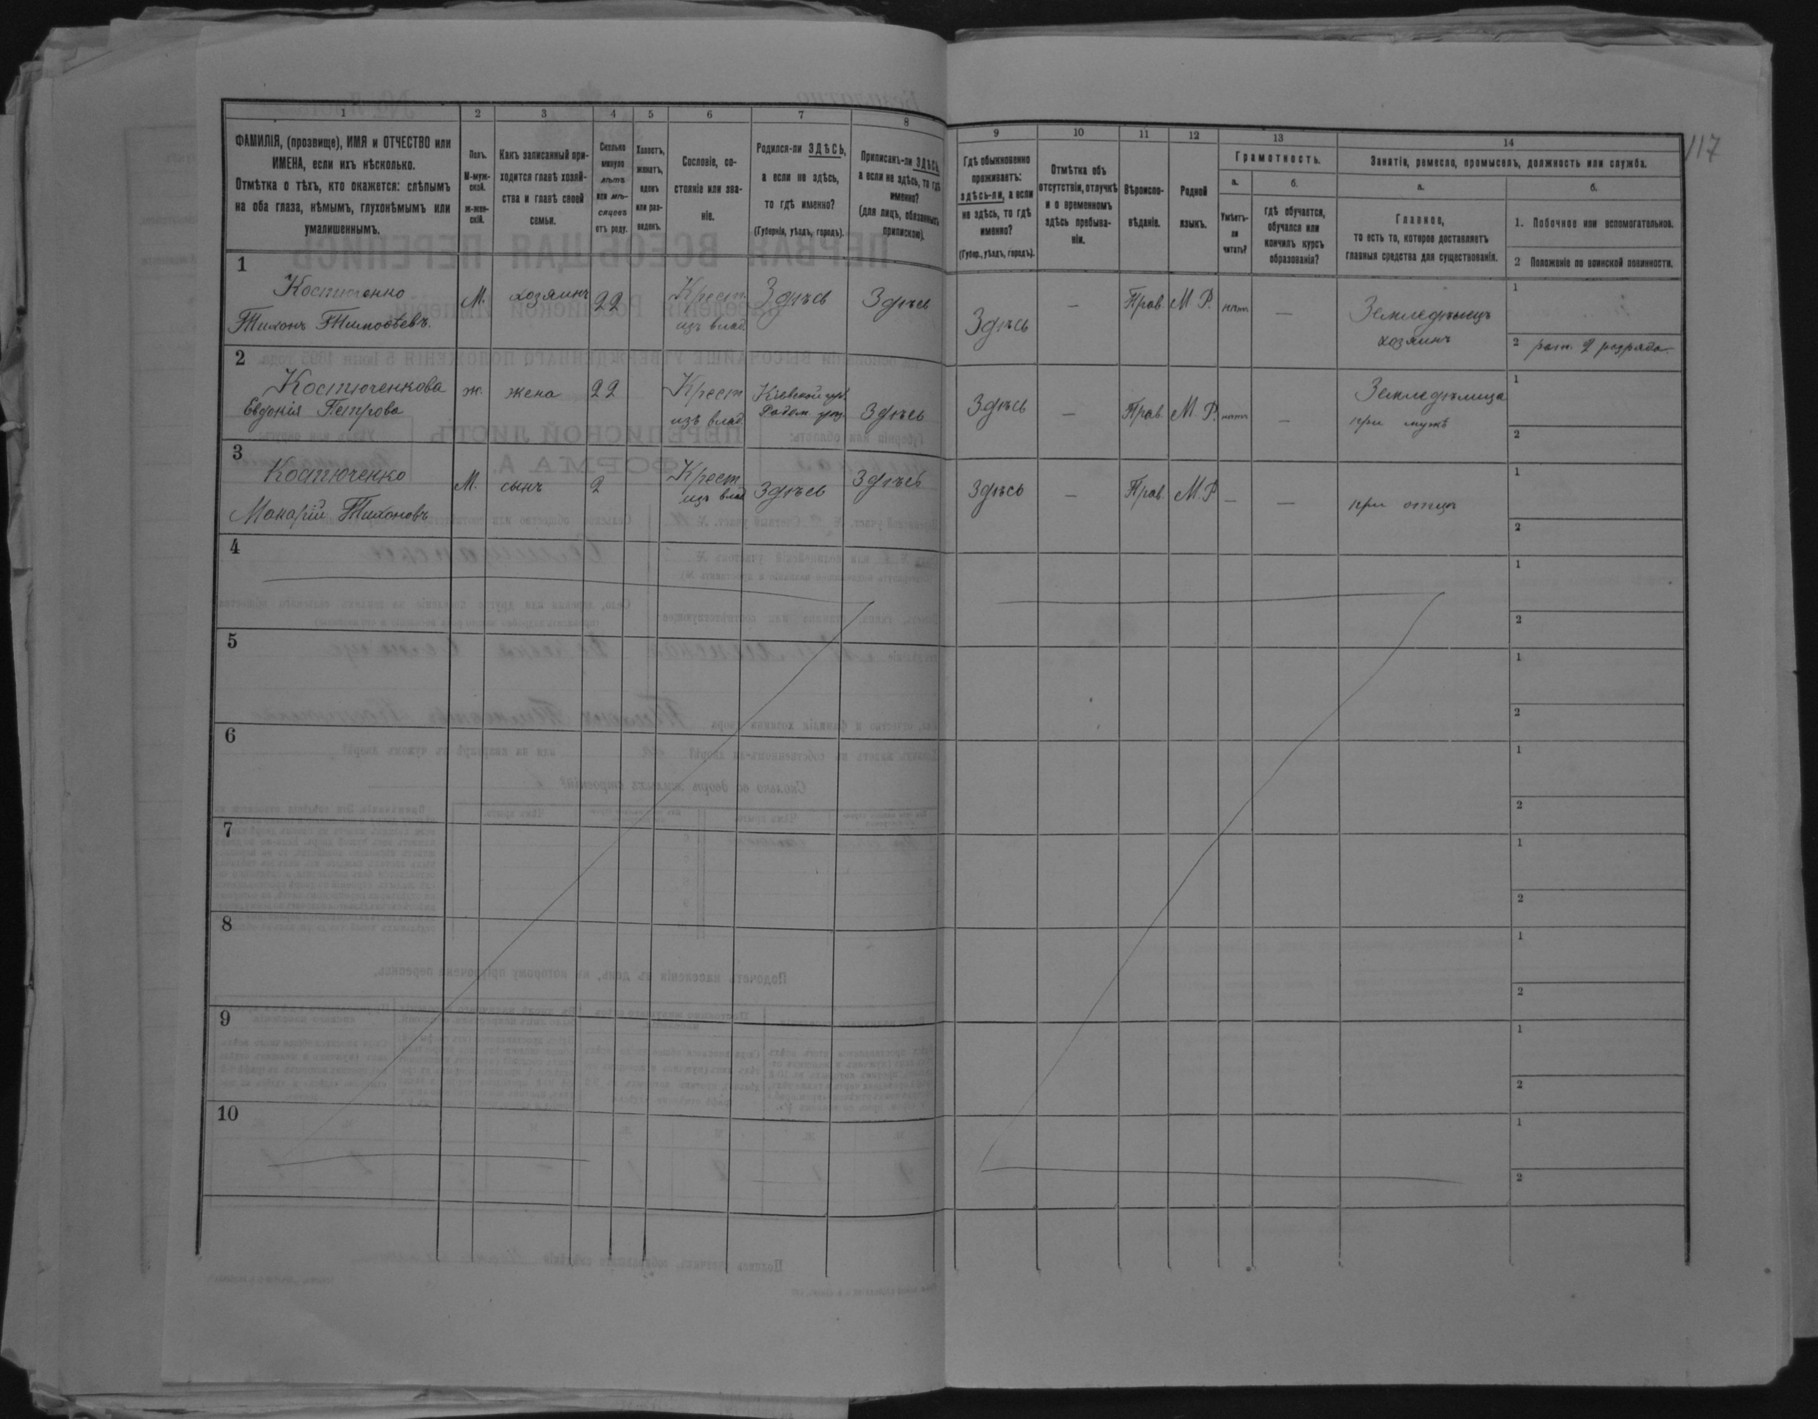 117
1 2 3 4 5 6 7 8 9 10 11 12 13 14
ФАМИЛІЯ, (прозвище), ИМЯ и ОТЧЕСТВО или
ИМЕНА, если ихъ нѣсколько.
Отмѣтка о тѣхъ, кто окажется: слѣпымъ
на оба глаза, нѣмымъ, глухонѣмымъ или
умалишеннымъ.
Полъ.
М-муж-
ской.
ж-жен-
скій.
Какъ записанный при-
ходится главѣ хозяй-
ства и главѣ своей
семьи.
Сколько
минуло
лѣтъ
или мѣ-
сяцевъ
отъ роду.
Холостъ,
женатъ,
вдовъ
или раз-
веденъ.
Сословіе, со-
стояніе или зва-
ніе.
Родился-ли ЗДѢСЬ,
а если не здѣсь,
то гдѣ именно?
(Губернія, уѣздъ, городъ).
Приписанъ-ли ЗДѢСЬ,
а если не здѣсь, то гдѣ
именно?
(для лицъ, обязанныхъ
припискою).
Гдѣ обыкновенно
проживаетъ:
здѣсь-ли, а если
не здѣсь, то гдѣ
именно?
(Губер., уѣздъ, городъ).
Отмѣтка объ
отсутствіи, отлучкѣ
и о временномъ
здѣсь пребыва-
ніи.
Вѣроиспо-
вѣданіе.
Родной
языкъ.
Грамотность.
а.
Умѣетъ-
ли
читать?
б.
гдѣ обучается,
обучался или
кончилъ курсъ
образованія?
Занятія, ремесло, промыселъ, должность или служба.
а.
Главное,
то есть то, которое доставляетъ
главныя средства для существованія.
б.
1. Побочное или вспомогательное.
2 Положеніе по воинской повинности.
1
Костюченко
Тихонъ Тимофѣевъ.
М.
хозяинъ
22
Крест
изъ влад
Здѣсь
Здѣсь
Здѣсь
—
Прав
М.Р.
нѣт
—
Земледѣлецъ
хозяинъ
1
2 ратн. 2 разряда
2
Костюченкова
Евдокія Петрова
ж.
жена
22
Крест
изъ влад
Кіевской губ
Радом. уѣз.
Здѣсь
Здѣсь
—
Прав
М.Р.
нѣт
—
Земледѣлица
при мужѣ
1
2
3
Костюченко
Макарій Тихоновъ
М.
сынъ
2
Крест
изъ влад
Здѣсь
Здѣсь
Здѣсь
—
Прав
М.Р
—
—
при отцѣ
1
2
4
1
2
5
1
2
6
1
2
7
1
2
8
1
2
9
1
2
10
1
2